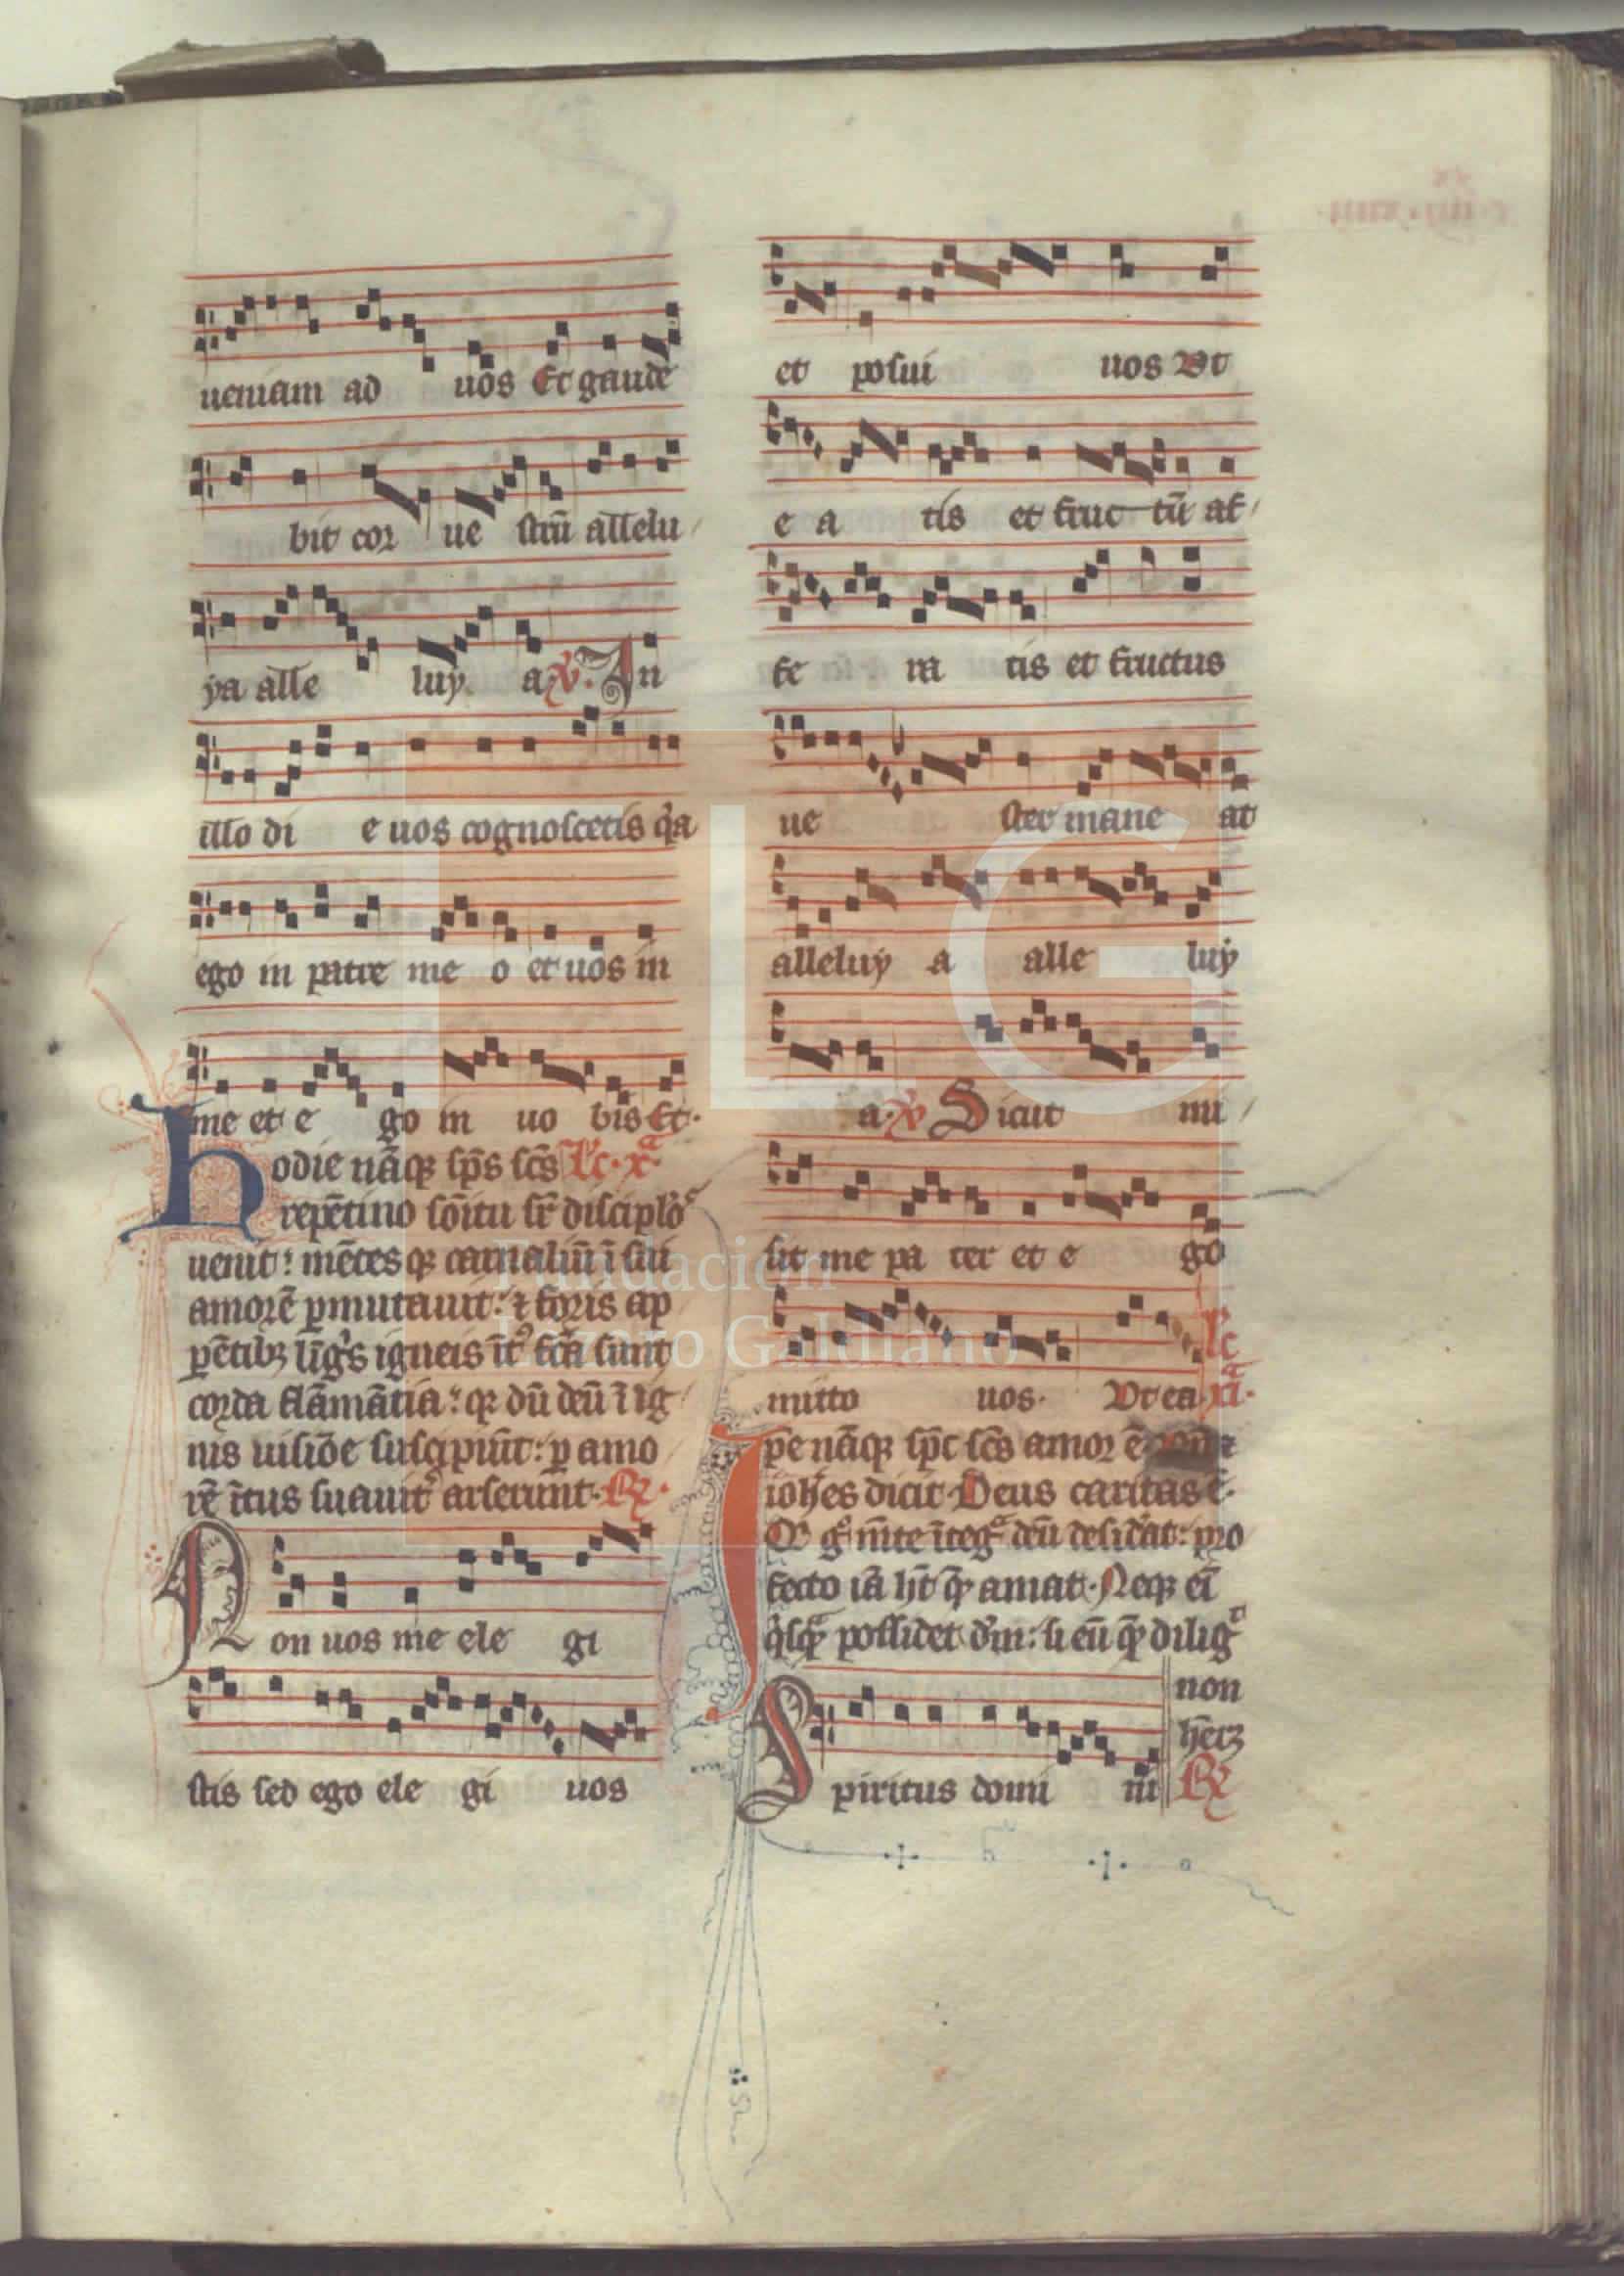 ueniam ad uos Et gaude
bit cor ue strū allelu
ya alle luy a ℣. In
illo di e uos cognoscetis q̇a
ego in patre me o et uos in
me et e go in uo bis Et.
hodie nāqꝫ sp̄s sc̄s lc̄. xᵃ
repētino sōitu sr̄ discipl̓oˢ
uenit: mētes qꝫ carnaliū ī sui
amorē ꝑmutauit: ⁊ foris ap
pētibꝫ līg̓s igneis īt᾽ fc̄a sunt
corda flāmātia: qꝫ dū deū ī ig
nis uisiōe suscipiūt: ꝑ amo
rē īctus suauit᾽ arserunt. ℟.
Non uos me ele gi
stis sed ego ele gi uos
et posui uos Vt
e a tis et fruc tū af
fe ra tis et fructus
ue ster mane at
alleluy a alle luy
a. ℣ Sicut mi
sit me pa ter et e go
mitto uos. Vt ea lc̄ xiᵃ.
Ipe nāqꝫ sp̄c sc̄s amor ē ⁊
ioh̄es dicit Deus caritas ē.
Q g᾽ m̄te īteg̾ deū desid̓at: pro
fecto iā h̄t q̄ amat. Neqꝫ ei̅
q̇sq̾ possidet d̄m: si eū q̄ dilig̾t
non
h̄etꝫ
Spiritus domi ni ℟
Fundación
Lázaro Galdiano